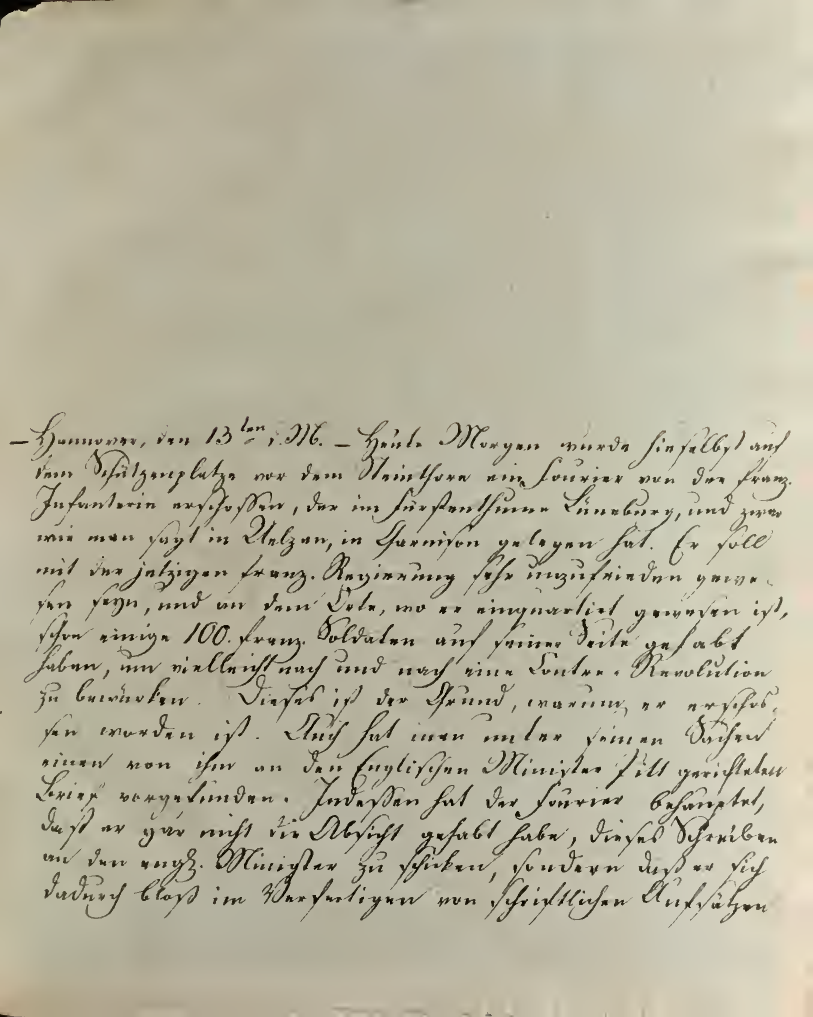 — Hannover, den 13ten d. M. — Heute Morgen wurde hieselbst auf
dem Schützenplatze vor dem Steinthore ein Fourier von der franz.
Infanterie erschossen, der im Fürstenthume Lüneburg, und zwar
wie man sagt in Uelzen, in Garnison gelegen hat. Er soll
mit der jetzigen franz. Regierung sehr unzufrieden gewe-
sen seyn, und an dem Orte, wo er einquartiert gewesen ist,
schon einige 100. franz. Soldaten auf seiner Seite gehabt
haben, um vielleicht nach und nach eine Contre-Revolution
zu bewürken. Dieses ist der Grund, warum er erschos-
sen worden ist. Auch hat man unter seinen Sachen
einen von ihm an den Englischen Minister Pitt gerichteten
Brief vorgefunden. Indessen hat der Fourier behauptet,
daß er gar nicht die Absicht gehabt habe, dieses Schreiben
an den engl. Minister zu schicken, sondern daß er sich
dadurch bloß im Verfertigen von schriftlichen Aufsätzen